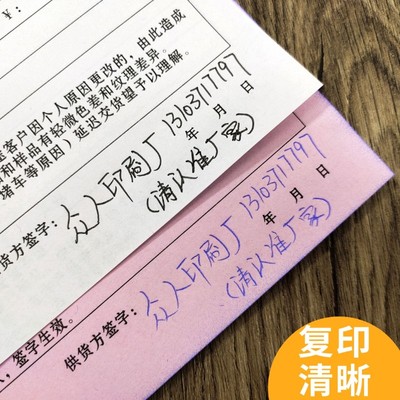 ¥:
客户因个人原因更改的,由此造成
和样品有轻微色差和纹理差异。
堵车等原因)延迟交货望予以理解。
供货方签字:众人印刷厂 13103717797
年 月 日
(请认准厂家)
签字生效。
供货方签字:众人印刷厂 13103717797
年 月 日
(请认准厂家)
复印
清晰